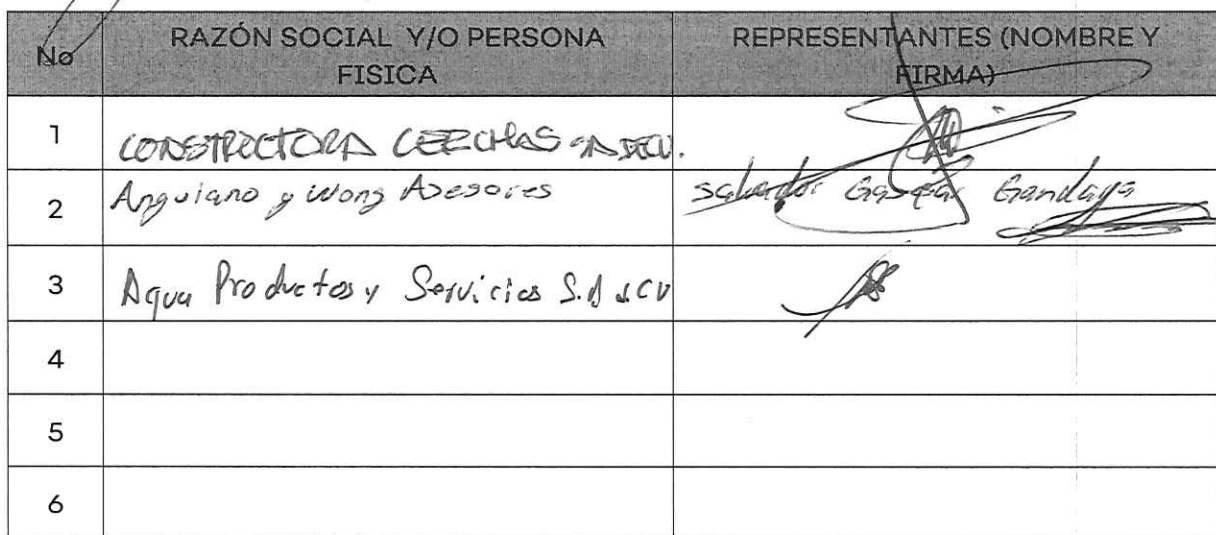 No
RAZÓN SOCIAL Y/O PERSONA
FISICA
REPRESENTANTES (NOMBRE Y
FIRMA)
1
CONSTRUCTORA
2
Anguiano y Wong Asesores
Salvador Gandaga
3
Aqua Productos y Servicios S.A d CV
4
5
6